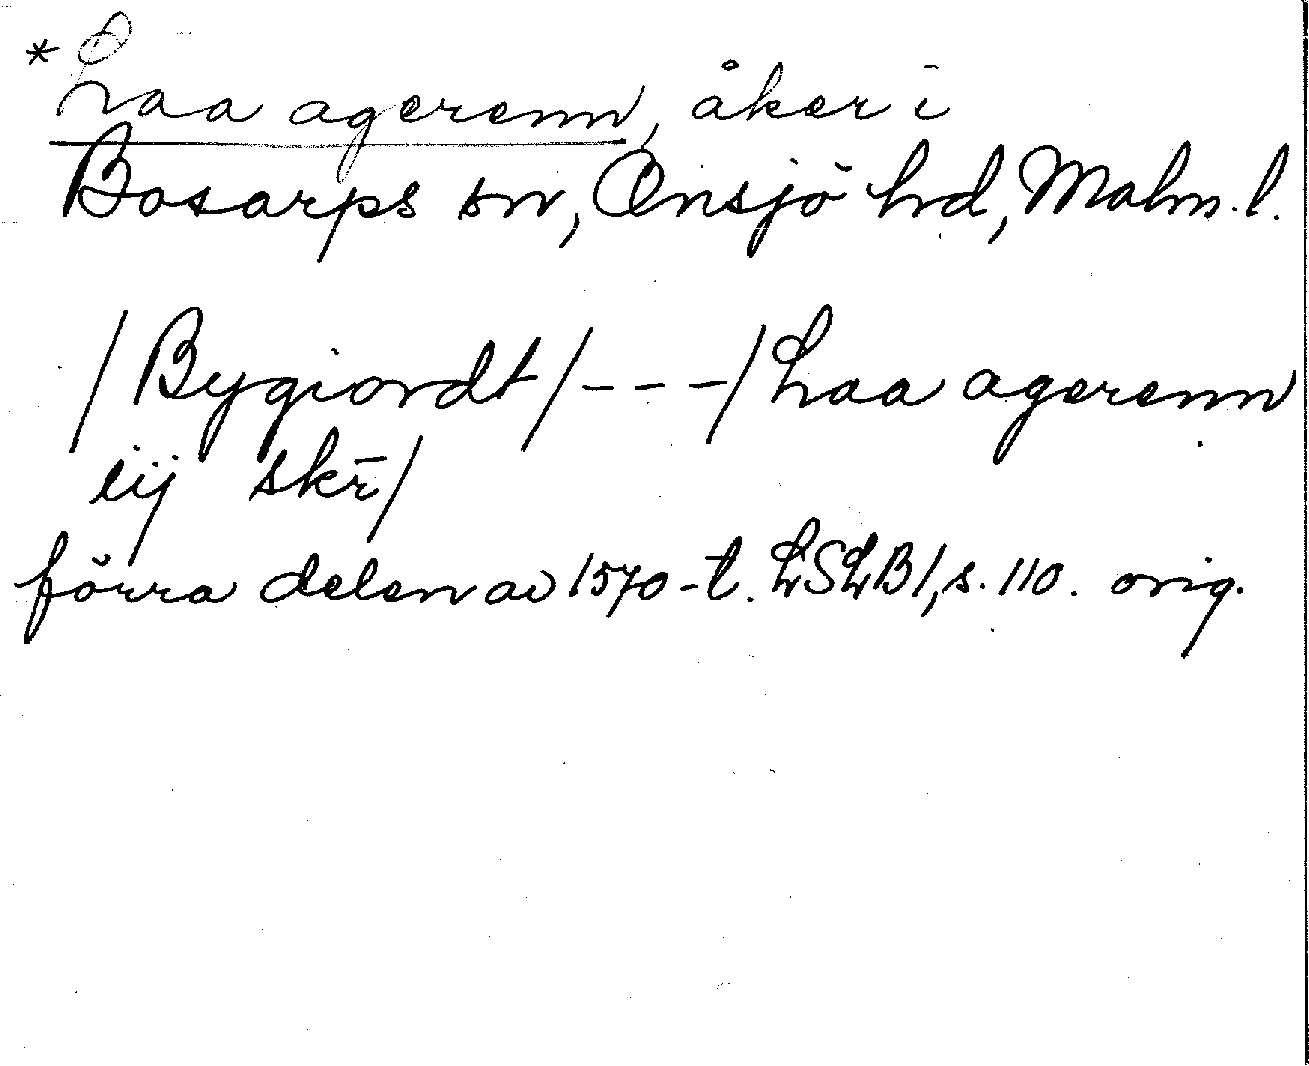 * Laa agerenn, åker i
Bosarps sn, Onsjö hd, Malm. l.
/ Bygiordt / - - - / Laa agerenn
iij skr̄ /
förra delen av 1570-t. LSLB 1, s. 110. orig.